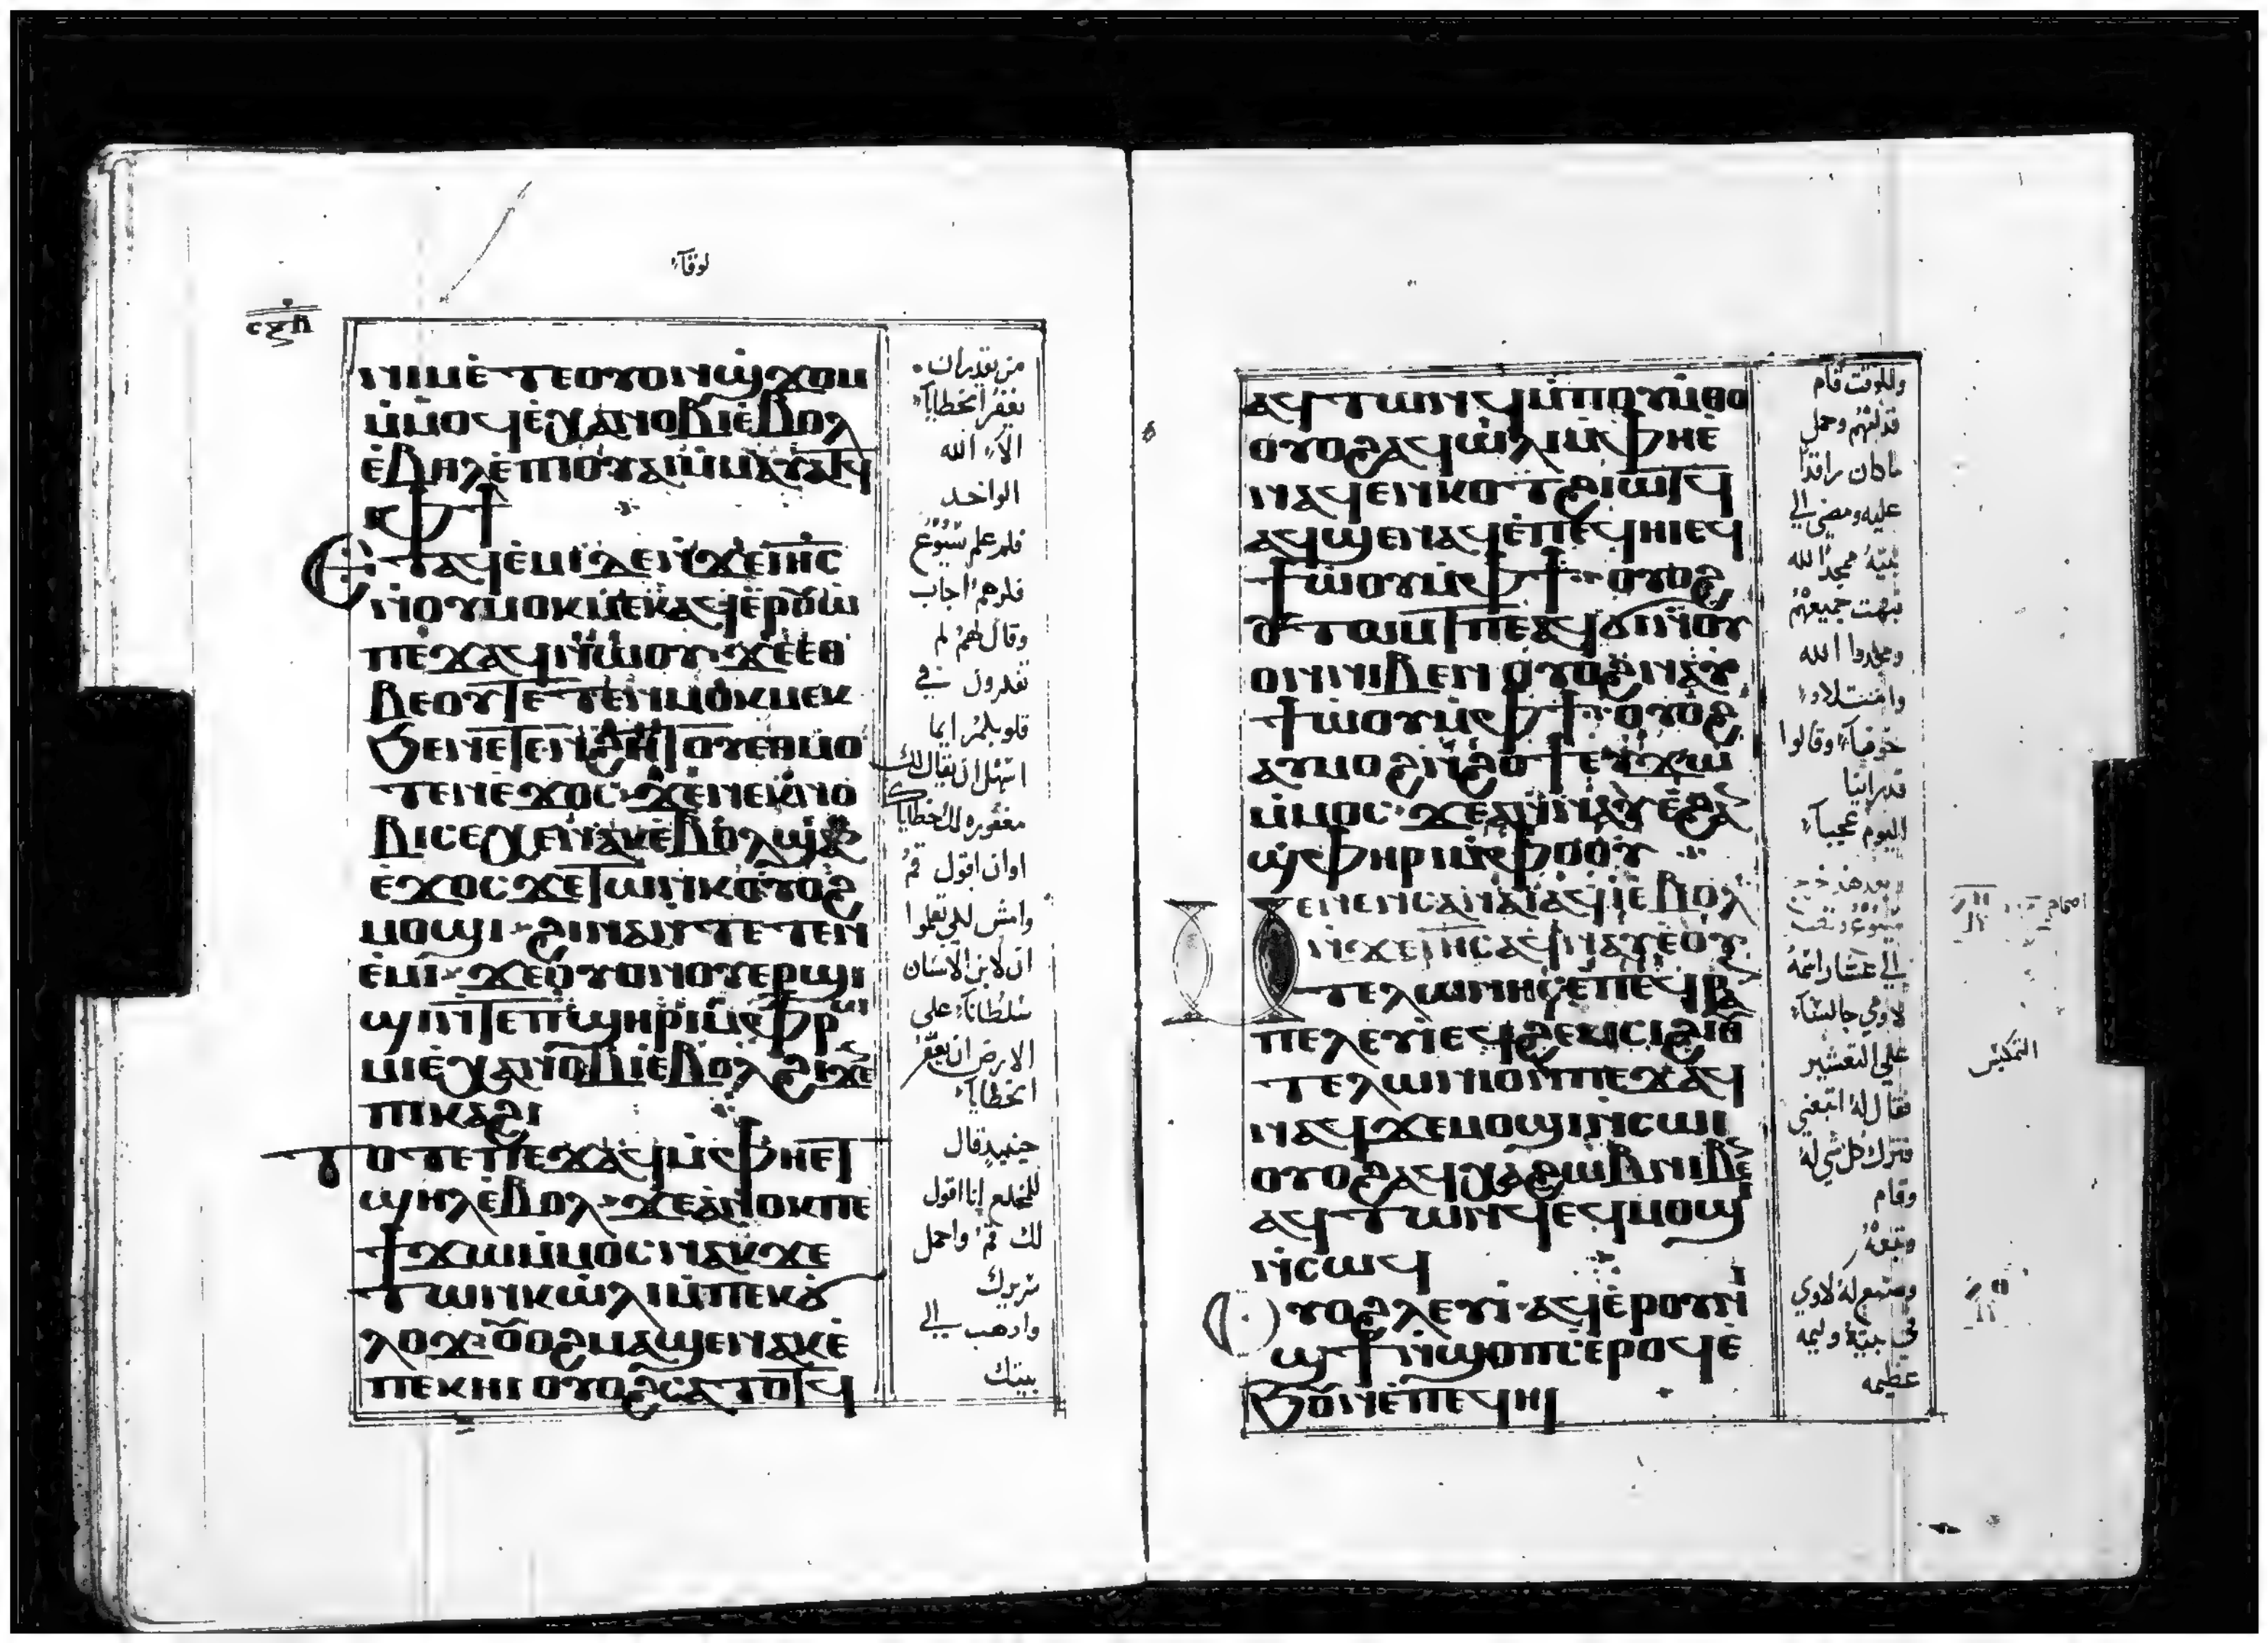 لوقآء
ⲥⲝⲃ
ⲛⲓⲙⲉ̀ⲧⲉⲟⲩⲟⲛϣϫⲟⲙ
ⲙ̀ⲙⲟϥⲉ̀ⲭⲁⲛⲟⲃⲓⲉ̀ⲃⲟⲗ
ⲉ̀ⲃⲏⲗⲉ̀ⲡⲓⲟⲩⲁⲓⲙ̀ⲙⲁⲩⲁⲧϥ
ⲫϯ
Ⲉⲧⲁϥⲉ̀ⲙⲓⲇⲉⲛ̀ϫⲉⲓⲏⲥ
ⲛ̀ⲟⲩⲙⲟⲕⲙⲉⲕⲁϥⲉ̀ⲣⲟⲩⲱ̀
ⲡⲉϫⲁϥⲛ̀ⲱⲟⲩ ϫⲉⲉⲑ
ⲃⲉⲟⲩⲧⲉⲧⲉⲛⲙⲟⲕⲙⲉⲕ
ϧⲉⲛⲛⲉⲧⲉⲛϩⲏⲧⲟⲩⲉⲑⲙⲟ
ⲧⲉⲛⲉϫⲟⲥ ϫⲉⲛⲉⲕⲛⲟ
ⲃⲓⲥⲉⲭⲏⲛⲁⲕⲉ̀ⲃⲟⲗϣⲁⲛ
ⲉ̀ϫⲟⲥϫⲉⲧⲱⲛⲕⲟⲩⲟϩ
ⲙⲟϣⲓ ϩⲓⲛⲁⲛ̀ⲧⲉⲧⲉⲛ
ⲉ̀ⲙⲓ ϫⲉⲟⲩⲟⲛⲟⲩⲉⲣϣⲓ
ϣⲓⲛ̀ⲧⲉⲡϣⲏⲣⲓⲙ̀ⲫⲣⲱ
ⲙⲓⲉ̀ⲭⲁⲛⲟⲃⲓⲉ̀ⲃⲟⲗϩⲓϫⲉ
ⲡⲓⲕⲁϩⲓ
ⲧⲟⲧⲉⲡⲉϫⲁϥⲙ̀ⲫⲏⲉⲧ
ϣⲏⲗⲉ̀ⲃⲟⲗ ϫⲉⲁⲛⲟⲕⲡⲉ
ϯϫⲱⲙ̀ⲙⲟⲥⲛⲁⲕϫⲉ
ⲧⲱⲛⲕⲱ̀ⲗⲓⲙ̀ⲡⲉⲕϭ
ⲗⲟϫ ⲟⲩⲟϩⲙⲁϣⲉⲛⲁⲕⲉ̀
ⲡⲉⲕⲏⲓ ⲟⲩⲟϩⲥⲁⲧⲟⲧϥ
من يقدر ان
يغفر الخطايآء
الآء الله
الواحد
فلمر علم يسوع
فلرهم اجاب
وقال لهم لم
تفكرون في
قلوبكمر ايما
اسهل ان يقال لك
مغفوره لك خطاياك
اوان اقول قم
وامش لكي تعلموا
ان لابن الانسان
سلطانآء على
الارض ان يغفر
الخطايآء
حينيذٍ قال
للمخلع انا اقول
لك قم واحمل
سريرك
واذهب الي
بيتك
ⲁϥⲧⲱⲛϥⲙ̀ⲡⲟⲩⲙ̀ⲑⲟ
ⲟⲩⲟϩⲁϥⲱ̀ⲗⲓⲙ̀ⲫⲏⲉ̀
ⲛⲁϥⲉⲛⲕⲟⲧϩⲓⲱⲧϥ
ⲁϥϣⲉⲛⲁϥⲉ̀ⲡⲉϥⲏⲓⲉϥ
ϯⲱ̀ⲟⲩⲙ̀ⲫϯ ⲟⲩⲟϩ
ⲟⲩⲧⲱⲙⲧⲡⲉⲁϥϭⲓⲛ̀ⲟⲩ
ⲟⲛⲛⲓⲃⲉⲛ ⲟⲩⲟϩⲛⲁⲩ
ϯⲱ̀ⲟⲩⲙ̀ⲫϯ ⲟⲩⲟϩ
ⲁⲩⲙⲟϩⲛ̀ϩⲟϯⲉⲩϫⲱ
ⲙ̀ⲙⲟⲥ ϫⲉⲁⲛⲛⲁⲩⲉ̀ϩⲁⲛ
ϣⲫⲏⲣⲓⲙ̀ⲫⲟⲟⲩ
ⲙⲉⲛⲉⲛⲥⲁⲛⲁⲓⲁϥⲓⲉ̀ⲃⲟⲗ
ⲛ̀ϫⲉⲓⲏⲥⲁϥⲛⲁⲩⲉ̀ⲟⲩ
ⲧⲉⲗⲱⲛⲏⲥⲉ̀ⲡⲉϥⲣⲁⲛ
ⲡⲉⲗⲉⲩⲓⲉϥϩⲉⲙⲥⲓϩⲓⲡⲓ
ⲧⲉⲗⲱⲛⲓⲟⲛⲡⲉϫⲁϥ
ⲛⲁϥϫⲉⲙⲟϣⲓⲛ̀ⲥⲱⲓ
ⲟⲩⲟϩⲁϥⲭⲁϩⲱⲃⲛⲓⲃⲉⲛ
ⲁϥⲧⲱⲛϥⲉϥⲙⲟϣ
ⲛ̀ⲥⲱϥ
Ⲟⲩⲟϩⲗⲉⲩⲓ ⲁϥⲉ̀ⲣⲟⲩⲛⲓ
ϣϯⲛ̀ϣⲟⲡⲥⲉ̀ⲣⲟϥⲉ̀
ϧⲟⲩⲛⲉ̀ⲡⲉϥⲏⲓ
وللوقت قام
قدامهم وحمل
ماكان راقدا
عليه ومضي الي
بيته ممجدا لله
فبهت جميعهم
ومجدوا الله
وامتلاوا
خوفآء وقالوا
قد راينا
اليوم عجبآء
وبعد هذ خرج
الي عشار اسمه
لاوي جالسآء
علي التعشير
فقال له اتبعني
فترك كل شي له
وقام
وتبعه
وصنع له لاوي
في بيته وليمه
عظيمه